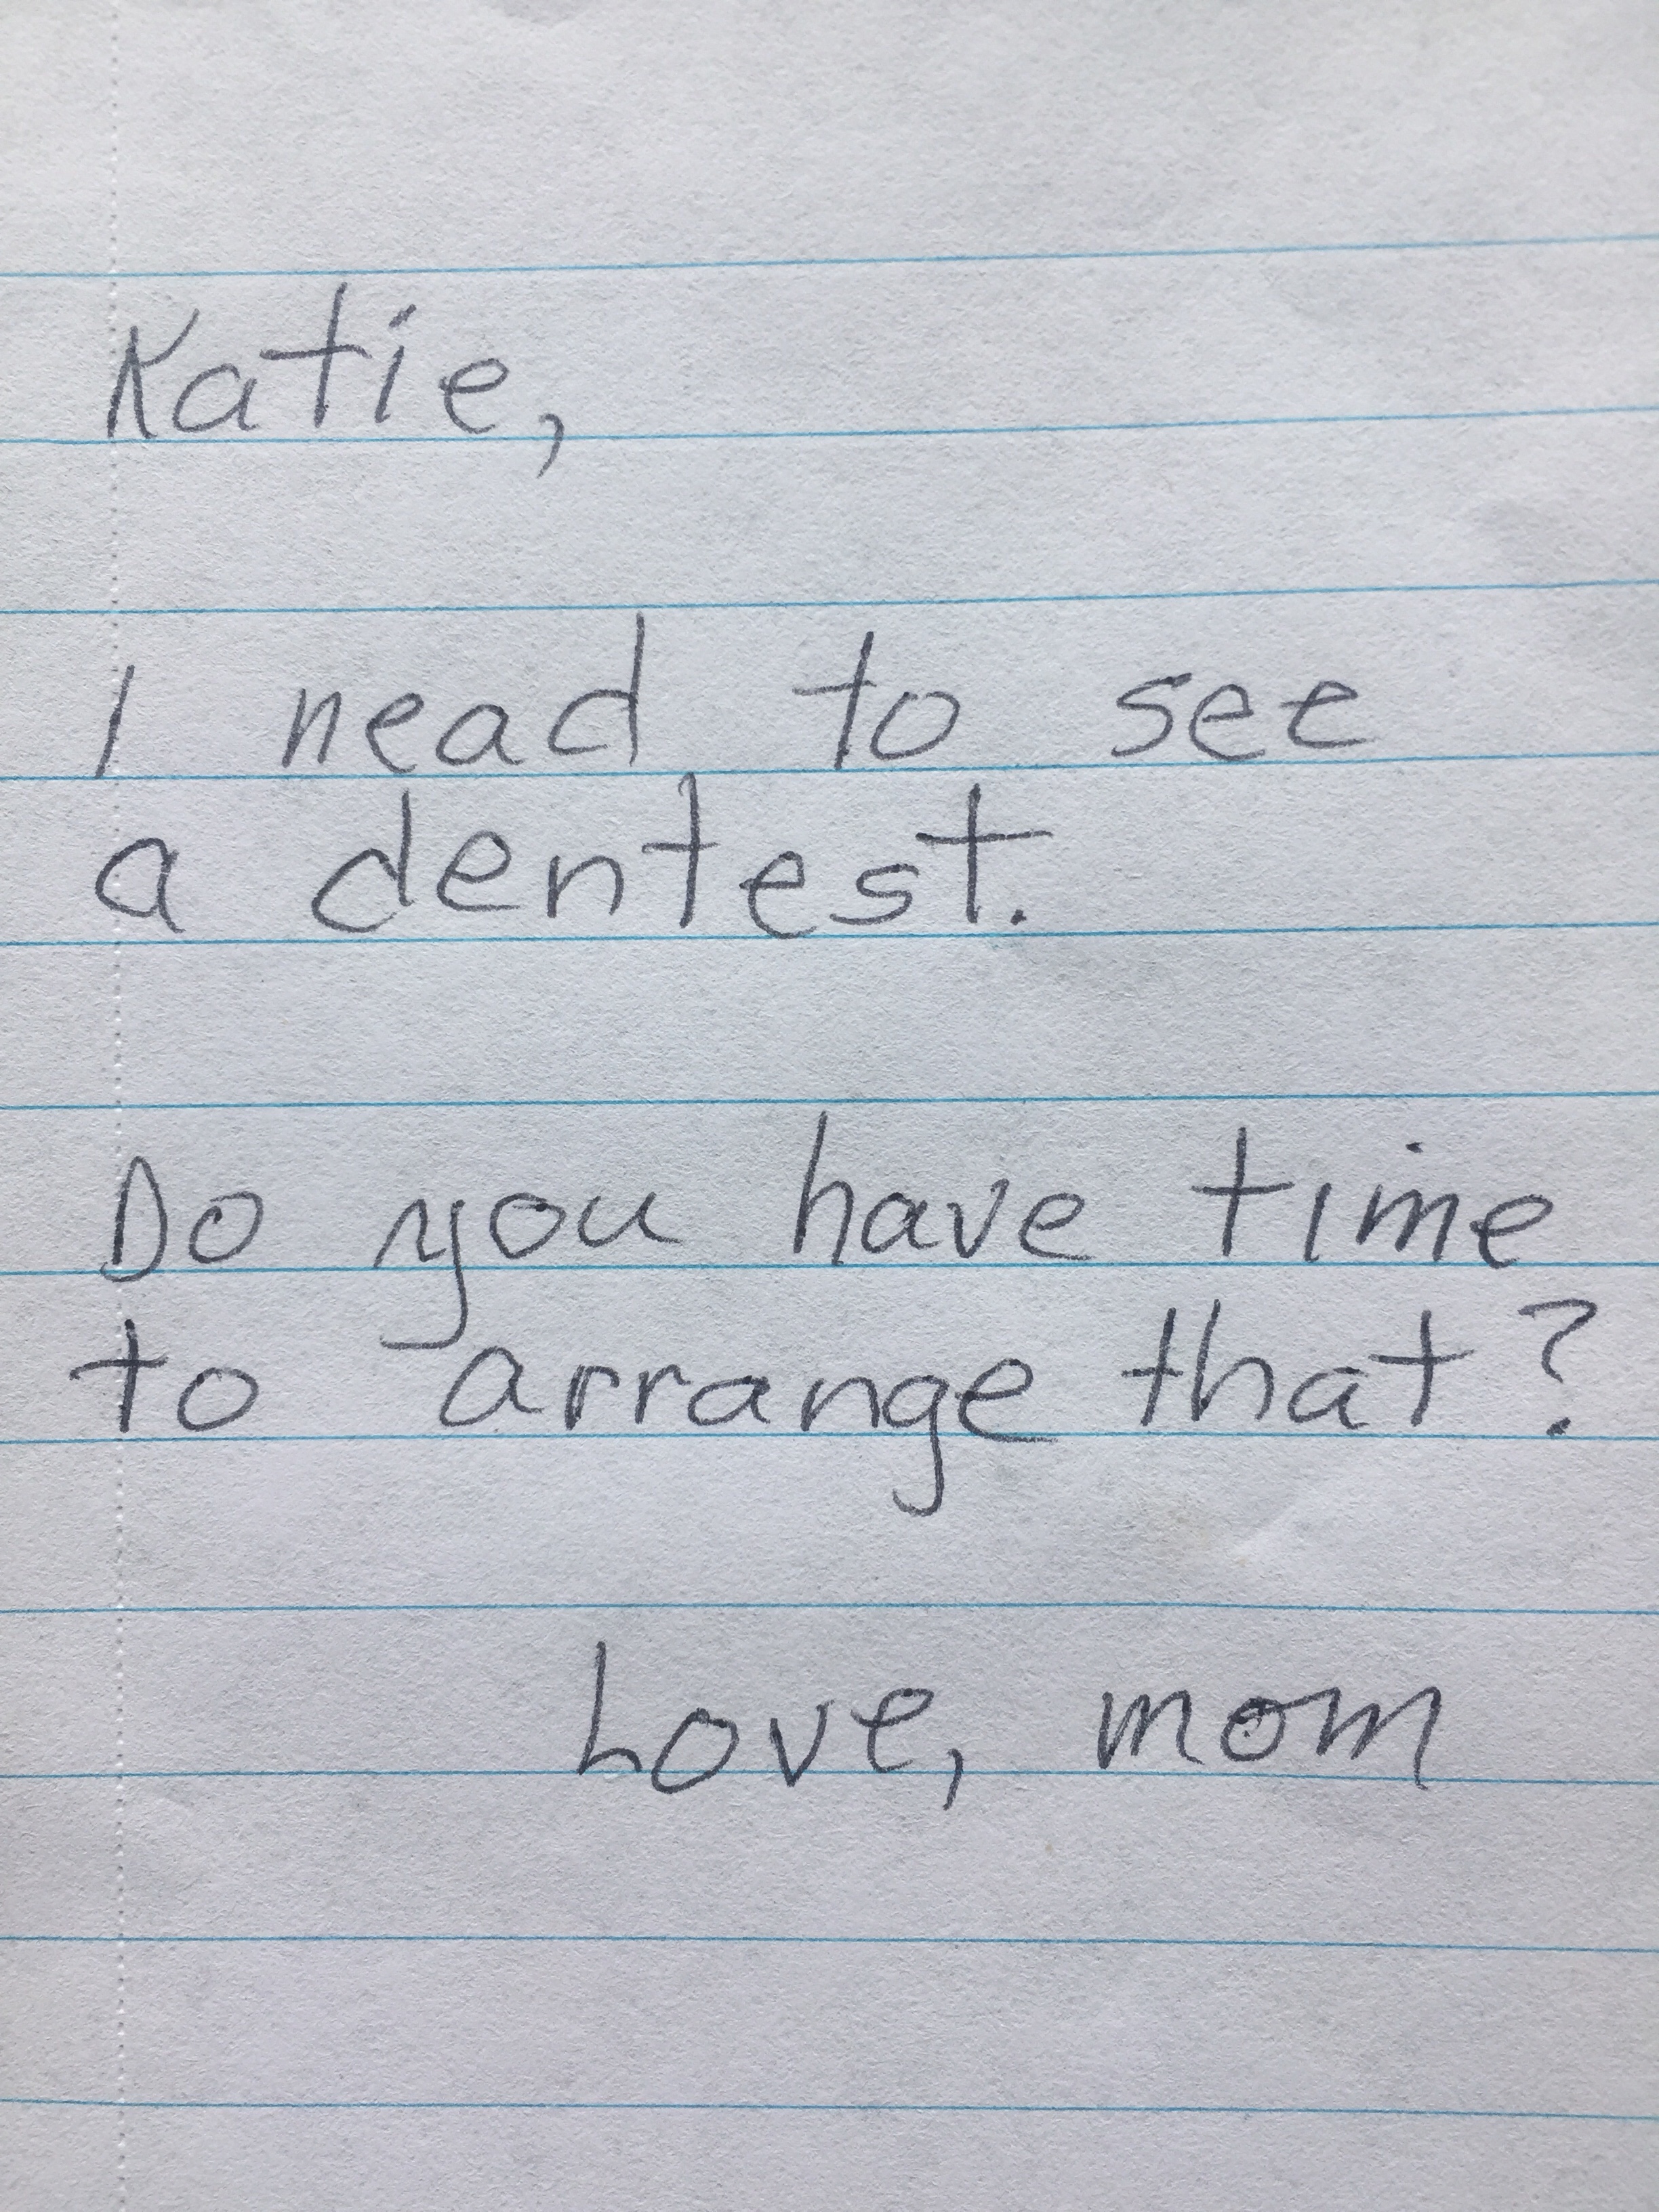 Katie,
I nead to see
a dentest.
Do you have time
to arrange that?
Love, mom